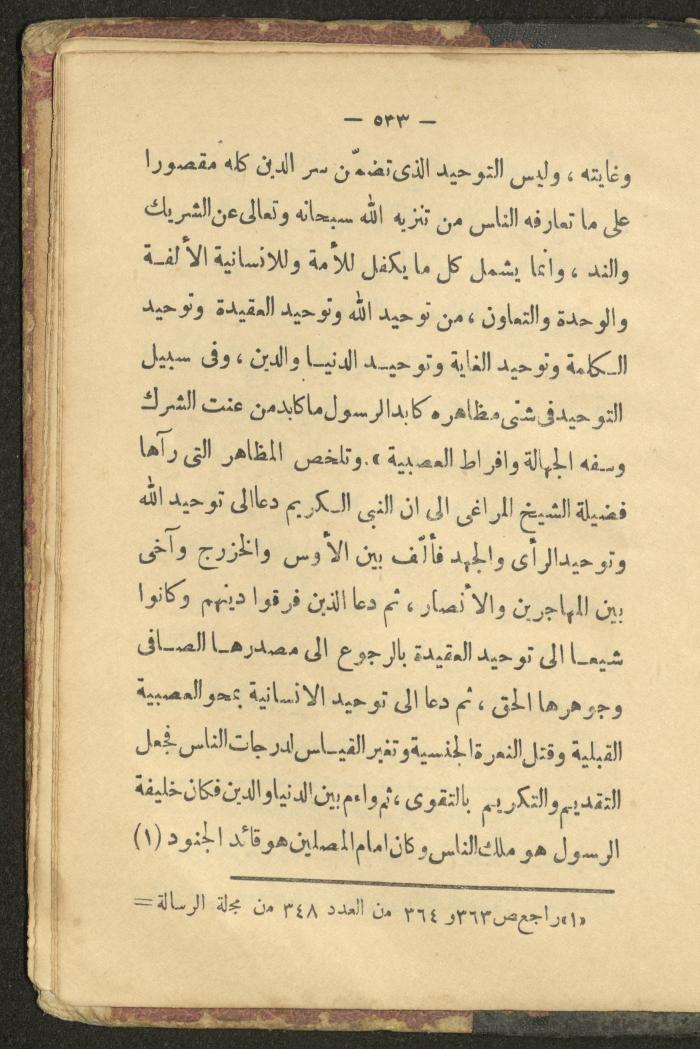 — ٥٣٣ —
وغايته ، وليس التوحيد الذى تضمّن سر الدين كله مقصورا
على ما تعارفه الناس من تنزيه الله سبحانه وتعالى عن الشريك
والند ، وانما يشمل كل ما يكفل للأمة وللانسانية الألفـة
والوحدة والتعاون ، من توحيد الله وتوحيد العقيدة وتوحيد
الـكلمة وتوحيد الغاية وتوحيـد الدنيـا والدين ، وفى سبيل
التوحيد فى شتى مظاهره كابد الرسول ما كابد من عنت الشرك
وسفه الجهالة وافراط العصبية » . وتلخص المظاهر التى رآها
فضيلة الشيخ المراغى الى ان النبى الـكريم دعا الى توحيد الله
وتوحيد الرأى والجهد فألّف بين الأوس والخزرج وآخى
بين المهاجرين والأنصار ، ثم دعا الذين فرقوا دينهم وكانوا
شيعـا الى توحيد العقيدة بالرجوع الى مصدرهـا الصـافى
وجوهرها الحق ، ثم دعا الى توحيد الانسانية بمحو العصبية
القبلية وقتل النعرة الجنسية وتغير القيـاس لدرجات الناس فجعل
التقديم والتكريم بالتقوى ، ثم واءم بين الدنيا والدين فكان خليفة
الرسول هو ملك الناس وكان امام المصلين هو قائد الجنود (١)
«١» راجع ص ٣٦٣ و ٣٦٤ من العدد ٣٤٨ من مجلة الرسالة =